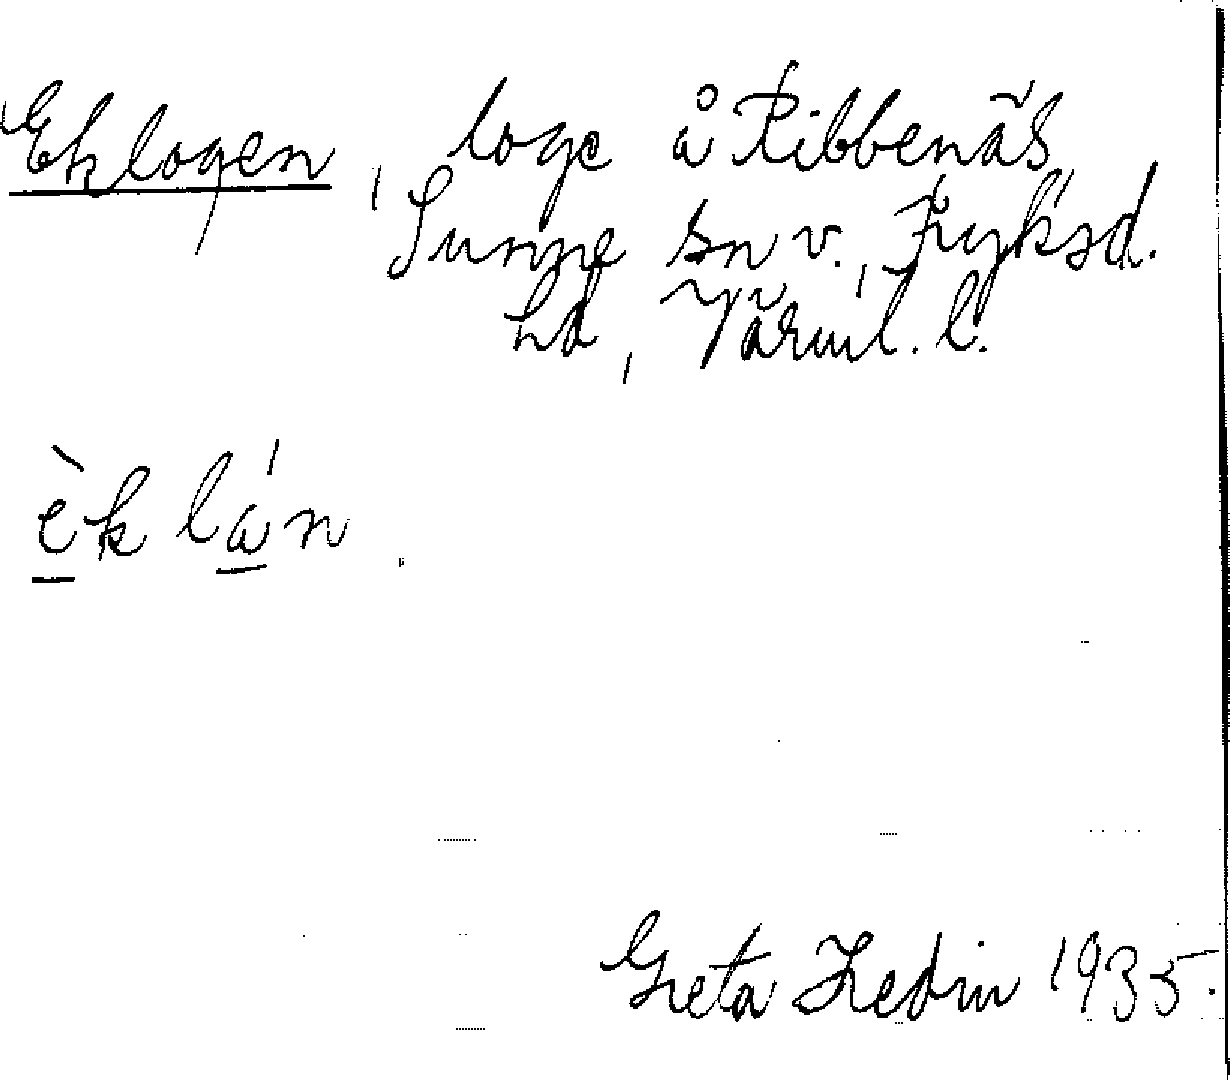 Eklogen, loge å Ribbenäs,
Sunne sn v., Fryksd.
hd, Värml. l.
èk lán.
Greta Hedin 1935.